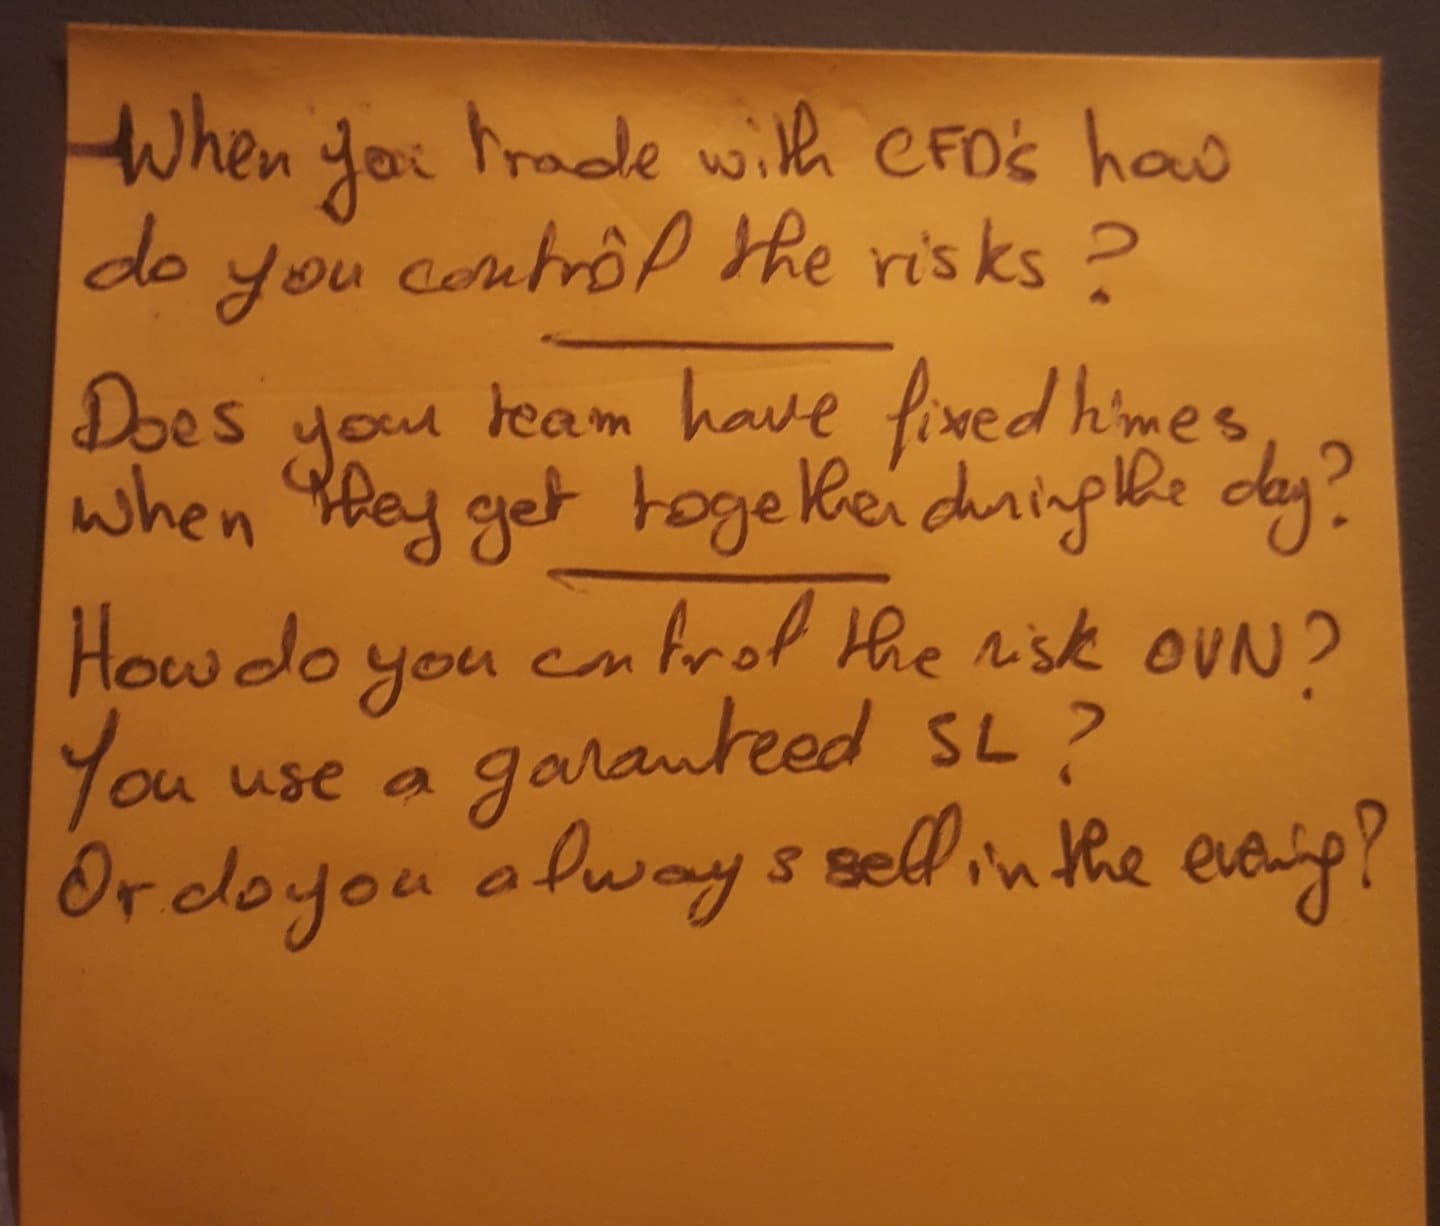 When you trade with CFD's how
do you contrôl the risks?
Does your team have fixed times,
when they get together during the day?
How do you control the risk OVN?
You use a garanteed SL?
Or do you always sell in the evening?